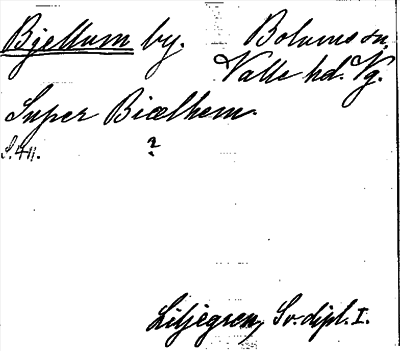 Bjellum by. Bolums sn.
Valle hd. Vg.
Super Biælhem.
S. 411. ?
Liljegren, Sv. dipl. I.